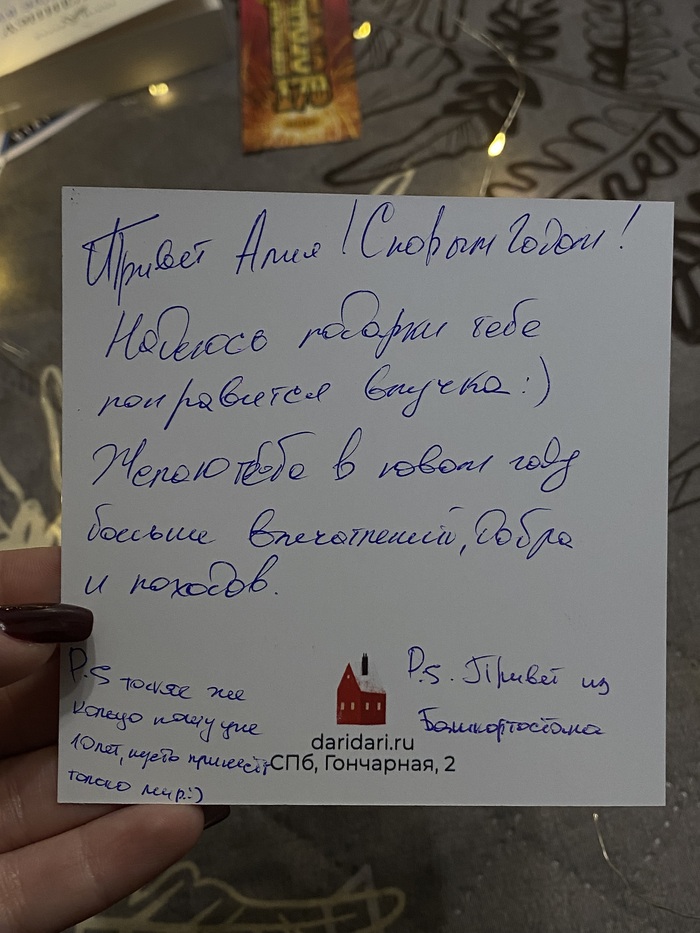 Привет Алия! С новым Годом!
Надеюсь подарки тебе
понравится внучка:)
Желаю тебе в новом году
больше впечатлений, Добра
и походов.
P.S такое же
кольцо ношу уже
10 лет, пусть принесёт
только мир:)
P.s. Привет из
Башкортостана
daridari.ru
СПб, Гончарная, 2